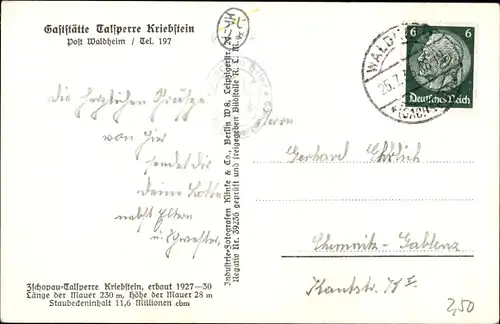 Gaststätte Talsperre Kriebstein
Post Waldheim / Tel. 197
Die herzlichen Grüße
von hier
sendet dir
deine Lotte
nebst Eltern
u. Schwester.
Zschopau-Talsperre Kriebstein, erbaut 1927—30
Länge der Mauer 230 m, Höhe der Mauer 28 m
Staubeckeninhalt 11,6 Millionen cbm
Industrie-Fotografen Klinke & Co., Berlin W 8, Leipzigerstr.
Negativ Nr. 39236 geprüft und freigegeben Bildstelle R. L. M.
WALDHEIM
25.7.
(SACHS)
6 6
Deutsches Reich
Herrn
Gerhard Ehrlich
Chemnitz-Gablenz
Kantstr.
2,50